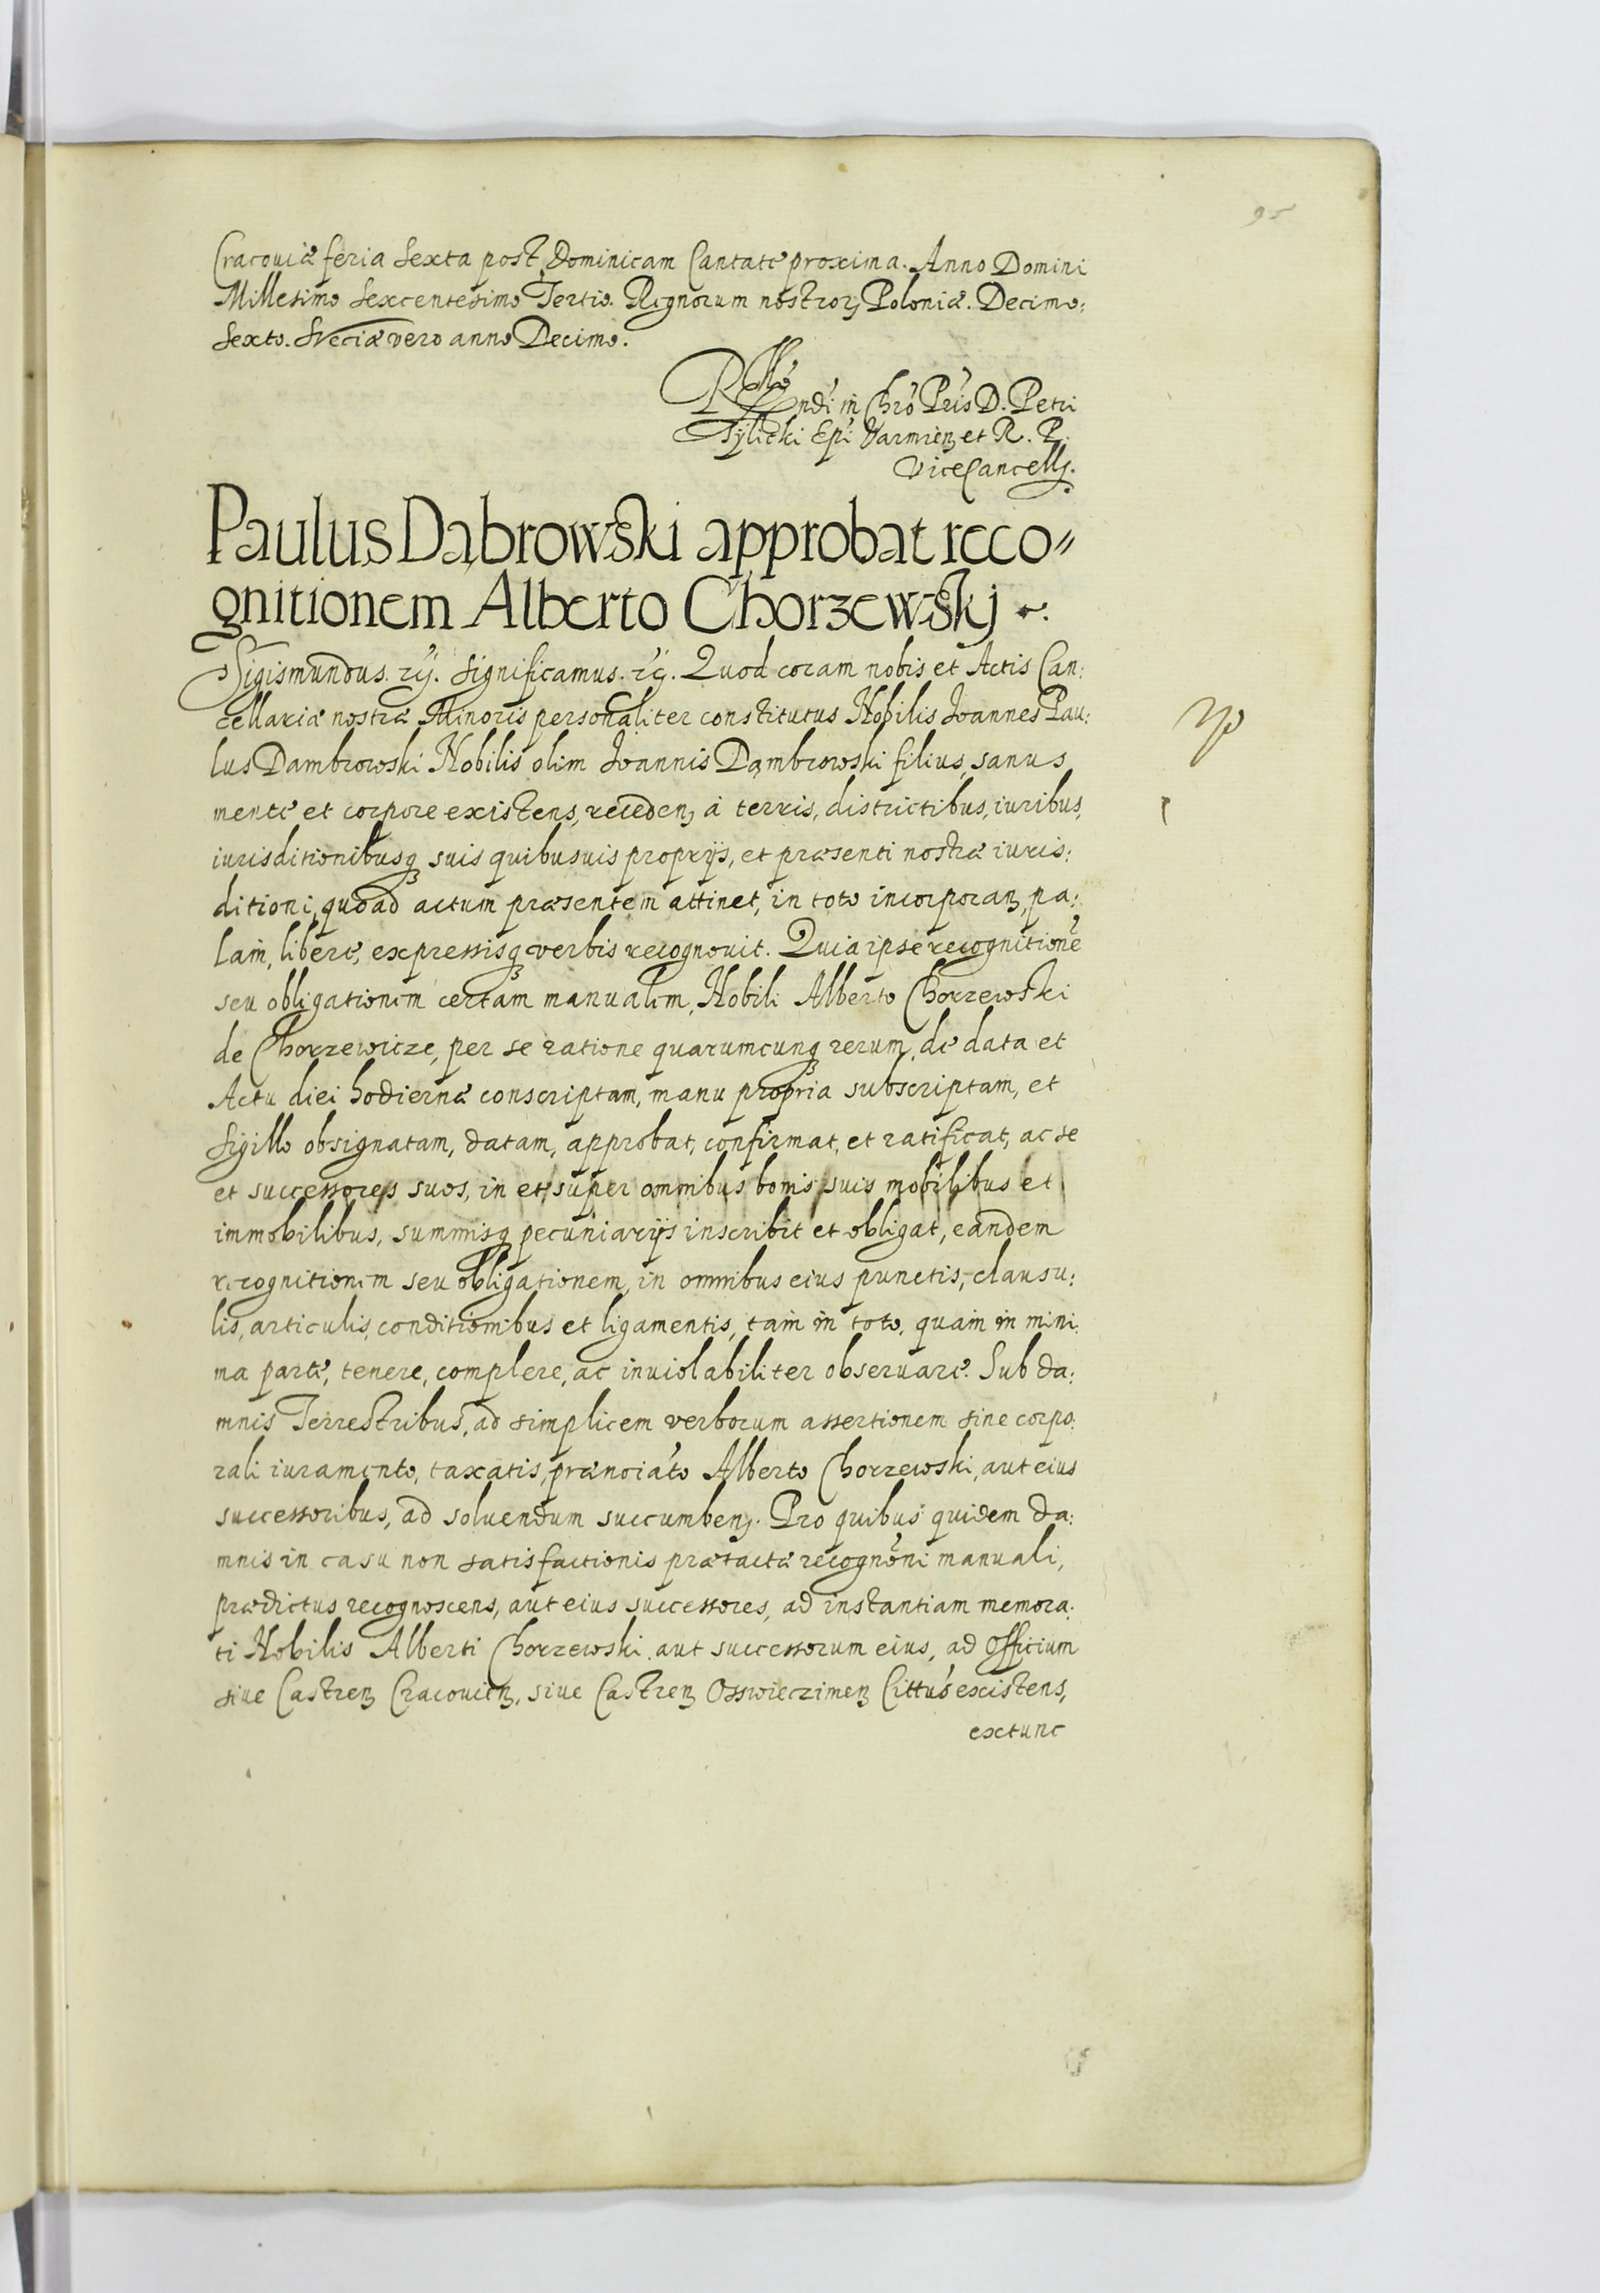 95
Cracouiæ feria Sexta post Dominicam Cantate proxima. Anno Domini
Millesimo Sexcentesimo Tertio. Regnorum nostroꝝ Poloniæ. Decimo:
Sexto. Sveciæ vero anno Decimo.
Rllo
Rndi in Chro Pris D. Petri
Tylicki Epi Varmieñ et R. P.
ViceCancellj.
Paulus Dąbrowski approbat reco„
gnitionem Alberto Chorzewskj
Sigismundus. rcj. Significamus. rcj. Quod coram nobis et Actis Can:
cellariæ nostræ Minoris personaliter constitutus Nobilis Joannes Pau:
lus Dambrowski Nobilis olim Joannis Dambrowski filius, sanus
mente et corpore existens, recedenꝫ á terris, districtibus, iuribus,
iurisditionibusqꝫ suis quibusuis proprijs, et præsenti nostræ iuris:
ditioni, quoad actum præsentem attinet, in toto incorporanꝫ, pa:
lam, libere, expressisqꝫ verbis recognouit. Quia ipse recognitionē
seu obligationem certam manualem, Nobili Alberto Chorzewski
de Chorzewicze, per se ratione quarumcunqꝫ rerum, de data et
Actu diei hodiernæ conscriptam, manu propria subscriptam, et
Sigillo obsignatam, datam, approbat, confirmat, et ratificat, ac se
et successores suos, in et super omnibus bonis suis mobilibus et
immobilibus, summisqꝫ pecuniarijs inscribit et obligat, eandem
recognitionem seu obligationem, in omnibus eius punctis, clausu:
lis, articulis, conditionibus et ligamentis, tam in toto, quam in mini:
ma parte, tenere, complere, ac inuiolabiliter obseruare. Sub da:
mnis Terrestribus, ad simplicem verborum assertionem sine corpo:
rali iuramento, taxatis, prænoīato Alberto Chorzewski, aut eius
successoribus, ad soluendum succumbenꝫ. Pro quibus quidem da:
mnis in casu non satisfactionis prætactæ recognōni manuali,
prædictus recognoscens, aut eius successores, ad instantiam memora:
ti Nobilis Alberti Chorzewski aut successorum eius, ad Officium
siue Castrenꝫ Cracouienꝫ, siue Castrenꝫ Osswieczimenꝫ Cittus existens,
extunc